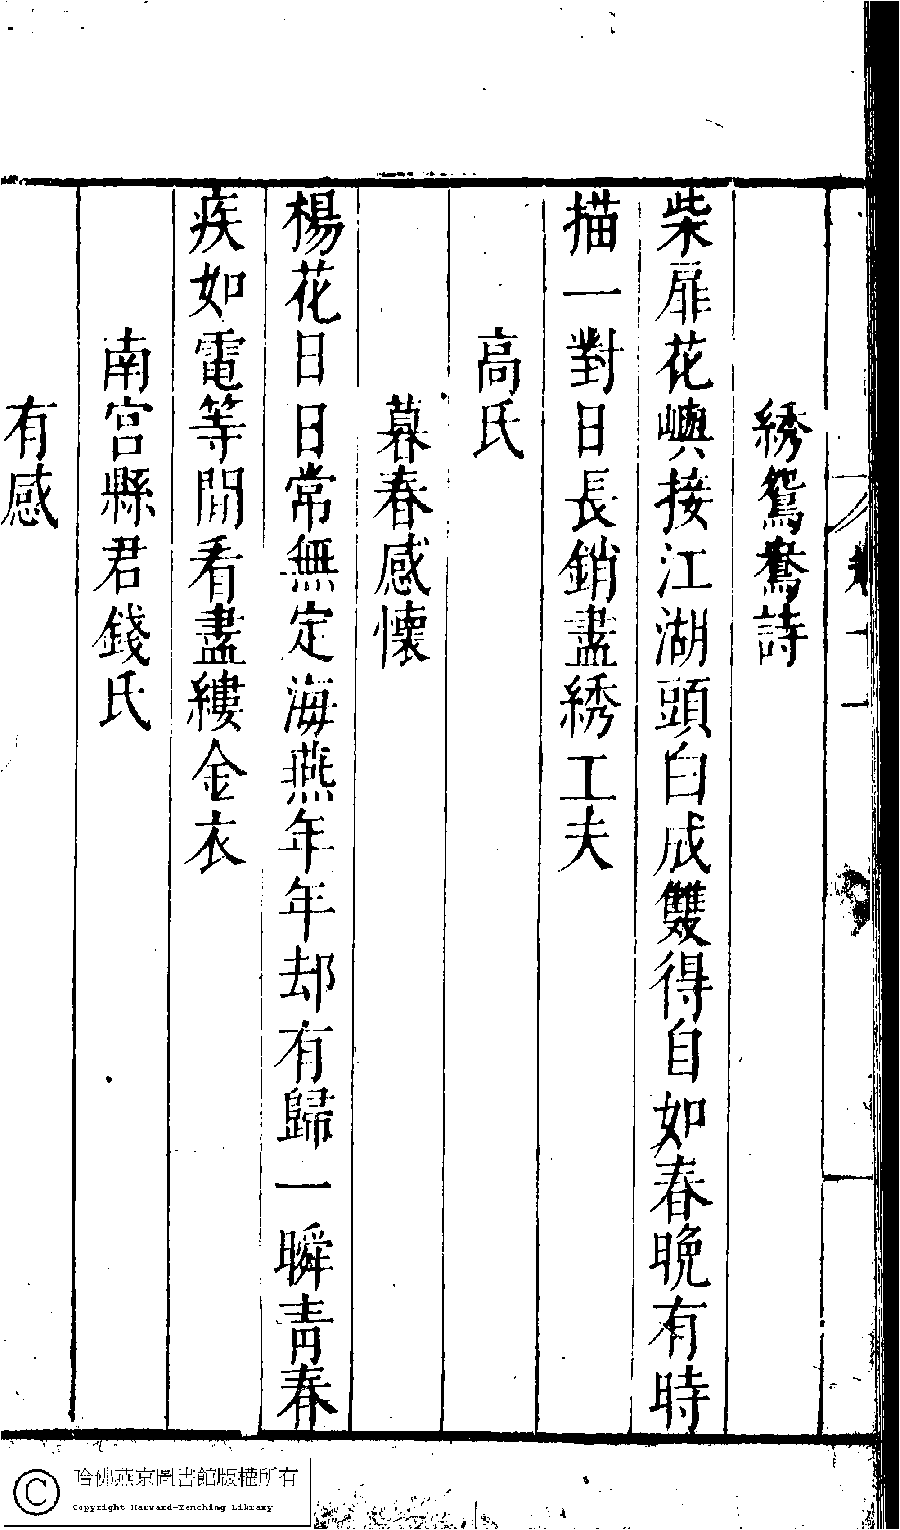 綉鴛鴦詩
柴扉花嶼接江湖頭白成雙得自如春晩有時
描一對日長銷盡綉工夫
高氏
暮春感懷
楊花日日常無定海燕年年却有歸一瞬青春
疾如電等間看盡縷金衣
南宫縣君錢氏
有感
哈佛燕京圖書館版權所有
Copyright Harvard-Yenching Library